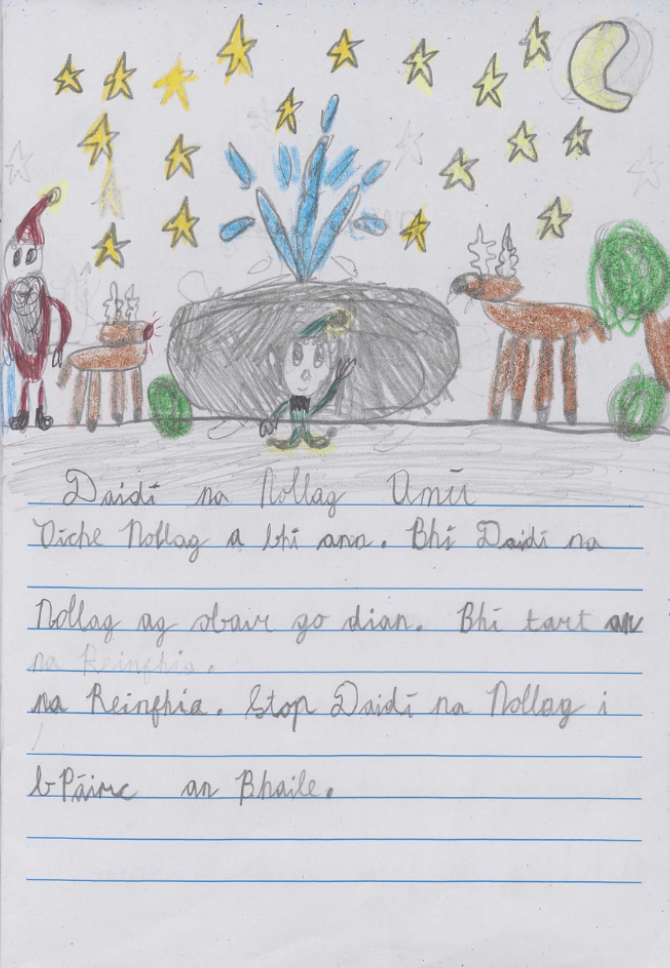 Daidí na Nollag Amú
Oiche Nollag a bhí ann. Bhí Daidí na
Nollag ag obair go dian. Bhí tart ar
na Reinfhia.
na Reinfhia. Stop Daidí na Nollag i
bPáirc an Bhaile.